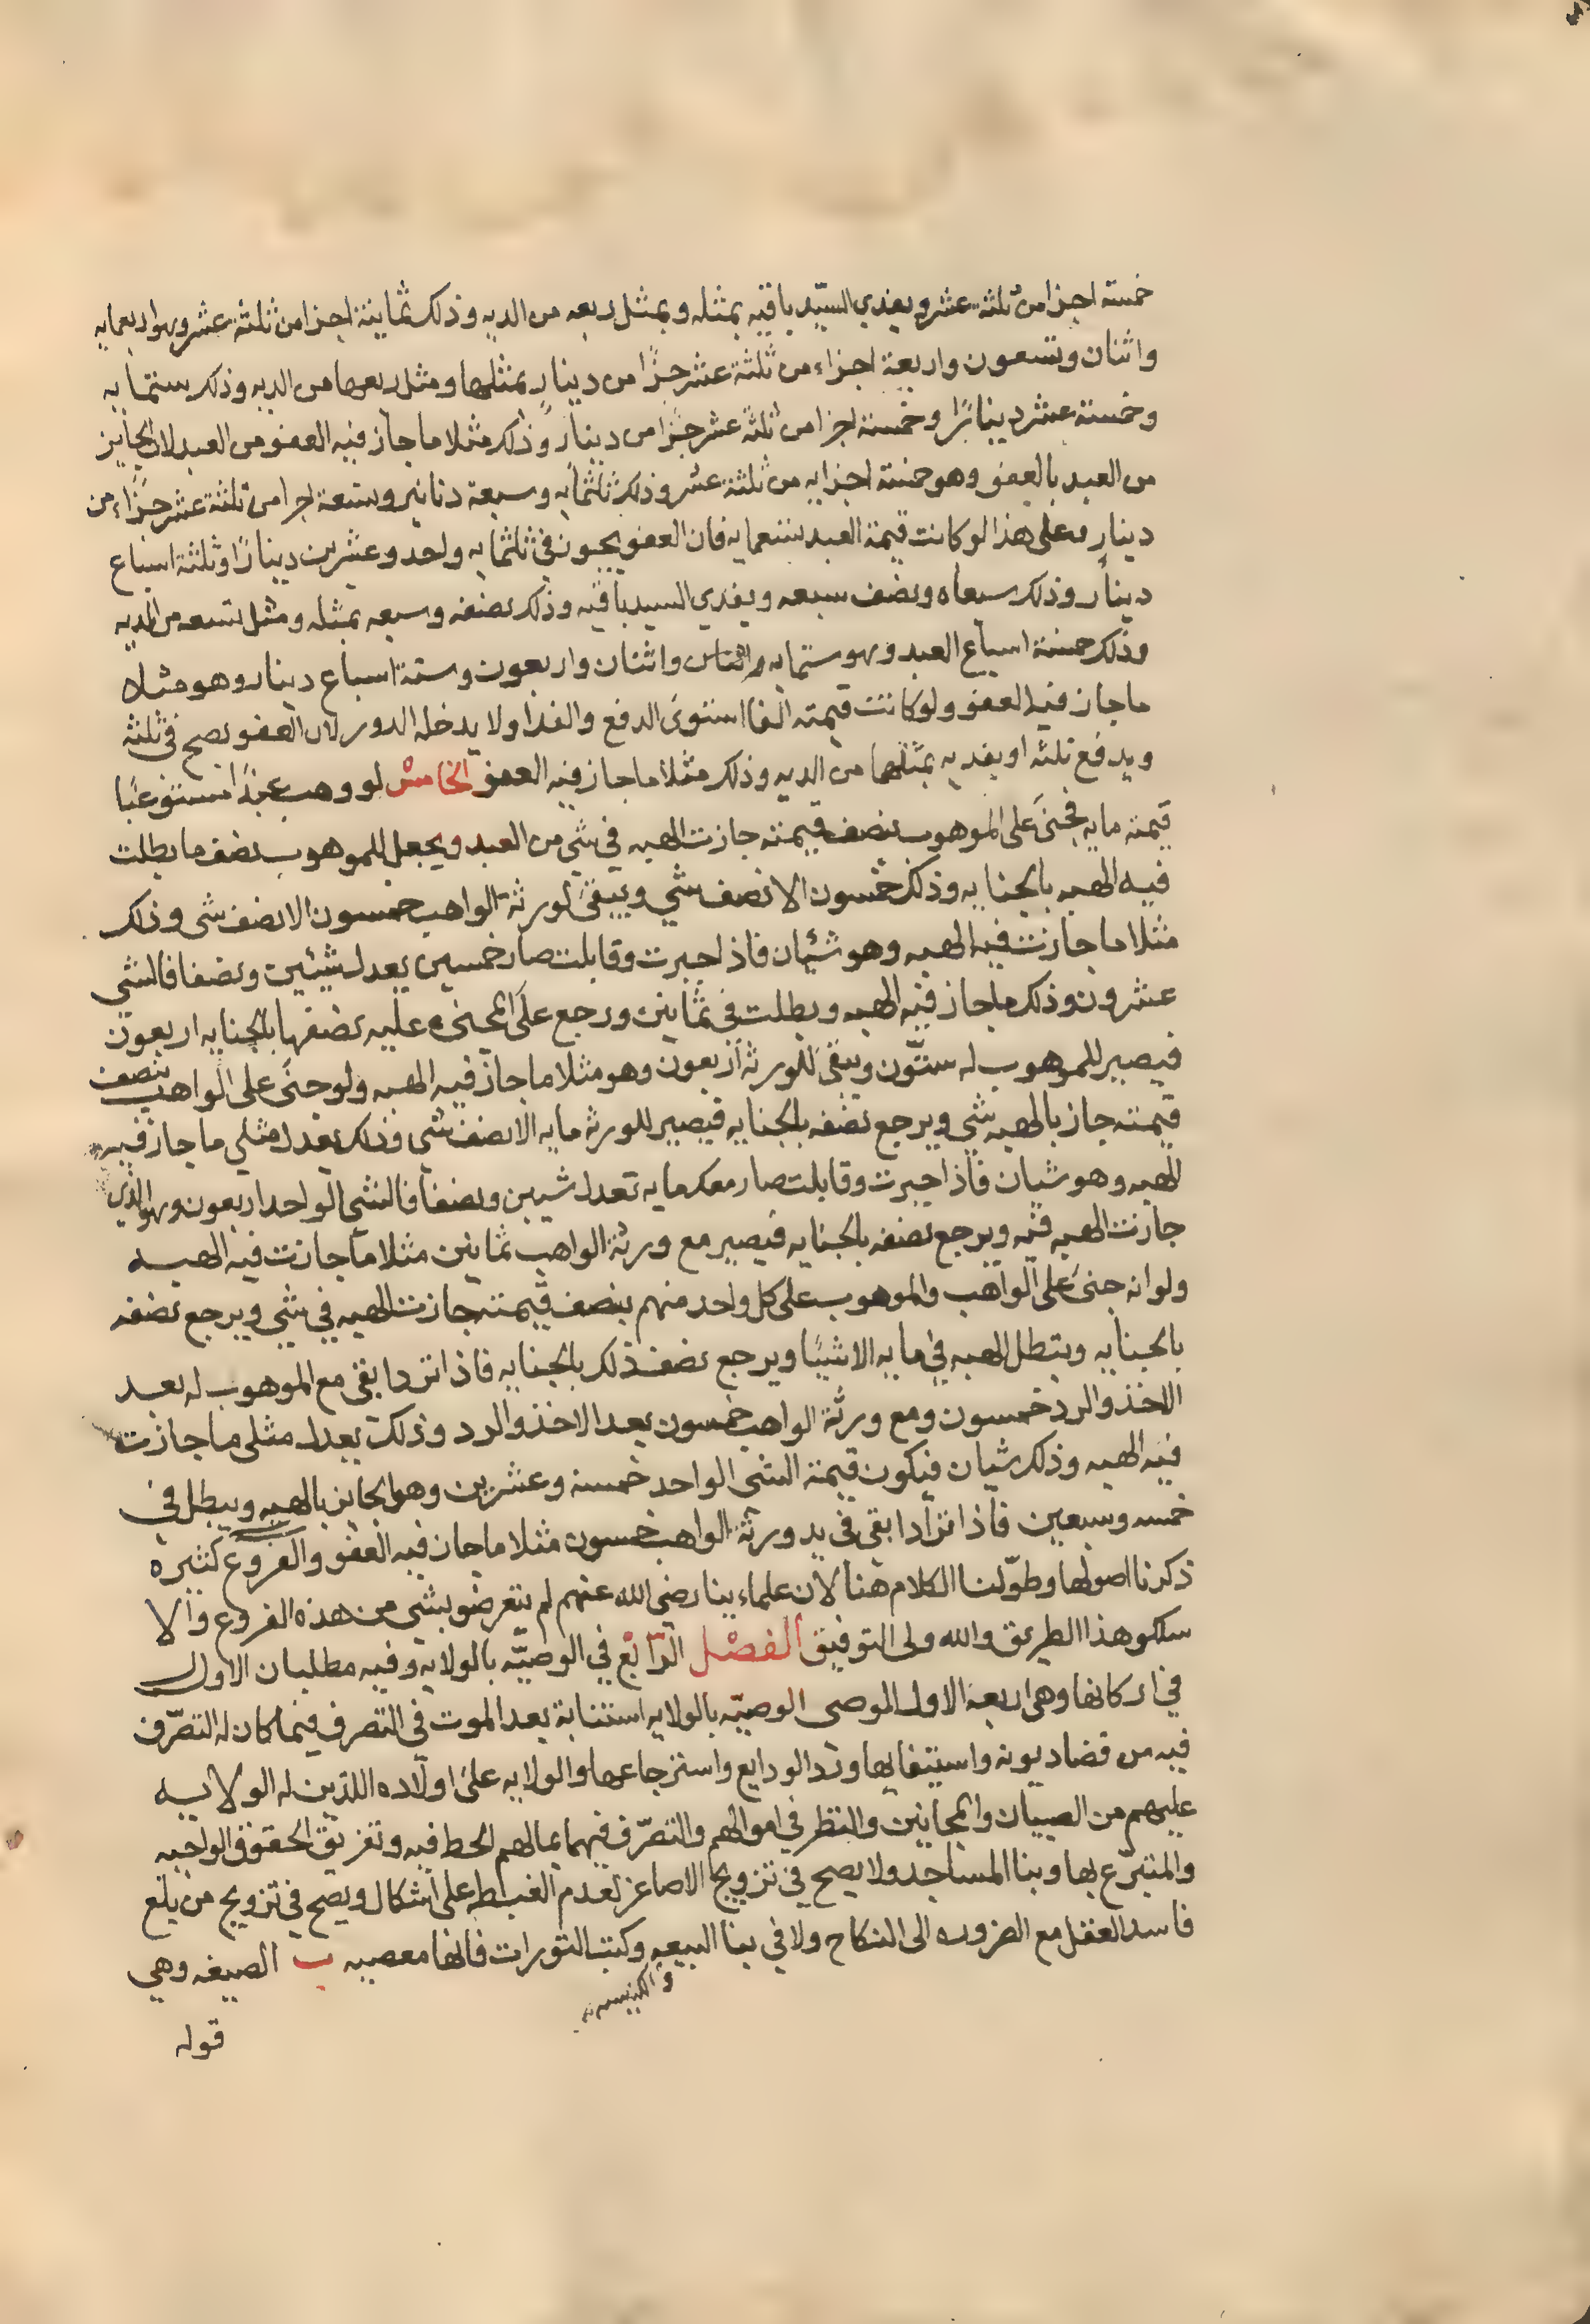 خمسة اجزا من ثلثة عشر ويفدي السيّد باقيه بمثله وبمثل ربعه من الديه وذلك ثمانية اجزا من ثلثة عشر وهو اربعمايه
واثنان وتسعون واربعة اجزاء من ثلثة عشر جزًا من دينار بمثلها ومثل ربعها من الديه وذلك ستمايه
وخمسة عشر دينارًا وخمسة اجزا من ثلثة عشر جزًا من دينار وذلك مثلا ما جاز فيه العفو من العبد لان الجايز
من العبد بالعفو وهو خمسة اجزايه من ثلثة عشر وذلك ثلثمايه وسبعة دنانير وتسعة اجزا من ثلثة عشر جزًاء من
دينار وعلى هذا لو كانت قيمة العبد تسعمايه فان العفو يجوز في ثلثمايه واحد وعشرين دينارًا وثلثة اسباع
دينار وذلك سبعاه ونصف سبعه ويفدي السيد باقيه وذلك نصفه وسبعه بمثله ومثل تسعه من الديه
وذلك خمسة اسباع العبد وهو ستمايه واثنان واربعون وستة اسباع دينار وهو مثلا
ما جاز فيه العفو ولو كانت قيمته الفا استوى الدفع والفدا ولا يدخله الدور لان العفو يصح في ثلثه
ويدفع ثلثه او يفديه بمثلها من الديه وذلك مثلا ما جاز فيه العفو الخامس لو وهب عبدًا مستوعبًا
قيمته مايه فجنى على الموهوب بنصف قيمته جازت الهبه في شي من العبد ويجعل للموهوب نصف ما بطلت
فيه الهبه بالجنايه وذلك خمسون الا نصف شي ويبقى لورثة الواهب خمسون الا نصف شي وذلك
مثلا ما جازت فيه الهبه وهو شيئان فاذا جبرت وقابلت صار خمسين يعدل شيئين ونصفا فالشي
عشرون وذلك ما جاز فيه الهبه وبطلت في ثمانين ورجع على المجنى عليه نصفها بالجنايه اربعون
فيصير للموهوب له ستّون ويبقى للورثه اربعون وهو مثلا ما جاز فيه الهبه ولو جنى على الواهب بنصف
قيمته جاز بالهبه شي ويرجع نصفه بالجنايه فيصير للورثه مايه الا نصف شي وذلك يعدل مثلي ما جاز فيه
الهبه وهو شيان فاذا جبرت وقابلت صار معك مايه تعدل شيين ونصفا فالشي الواحد اربعون وهو الذي
جازت الهبه فيه ويرجع نصفه بالجنايه فيصير مع ورثة الواهب ثمانين مثلا ما جازت فيه الهبه
ولو انه جنى على الواهب والموهوب على كل واحد منهم بنصف قيمته جازت الهبه في شي ويرجع نصفه
بالجنايه وبتطل الهبه في مايه الا شيئًا ويرجع نصف ذلك بالجنايه فاذا ترادا بقى مع الموهوب له بعد
الاخذ والرد خمسون ومع ورثة الواهب خمسون بعد الاخذ والرد وذلك يعدل مثلى ما جازت
فيه الهبه وذلك شيان فيكون قيمة الشى الواحد خمسة وعشرين وهو الجايز بالهبه ويبطل في
خمسه وسبعين فاذا ترّادا بقى في يد ورثة الواهب خمسون مثلا ما جاز فيه العفو والفروع كثيره
ذكرنا اصولها وطوّلنا الكلام هنا لان علماءينا رضي الله عنهم لم يتعرضو بشي من هذه الفروع والا
سلكو هذا الطريق والله ولى التوفيق الفصل الرّابع في الوصيّه بالولايه وفيه مطلبان الاول
في اركانها وهى اربعه الاول الموصى الوصيّه بالولايه استنابة بعد الموت في التصرف فيما كان له التصّرف
فيه من قضا ديونه واستيفايها ورد الودايع واسترجاعها والولايه على اولاده اللذين له الولايه
عليهم من الصبيان والمجانين والنظر في اموالهم والتصّرف فيها بما لهم الحظ فيه وتفريق الحقوق الواجبه
والمتبرّع بها وبنا المساجد ولا يصح في تزويج الاصاغر لعدم الغبطه على اشكال ويصح في تزويج من بلغ
فاسد العقل مع الضروره الى النكاح ولا في بنا البيعه وكتب التورات فانها معصيه ب الصيغه وهي
والكنيسه
قوله